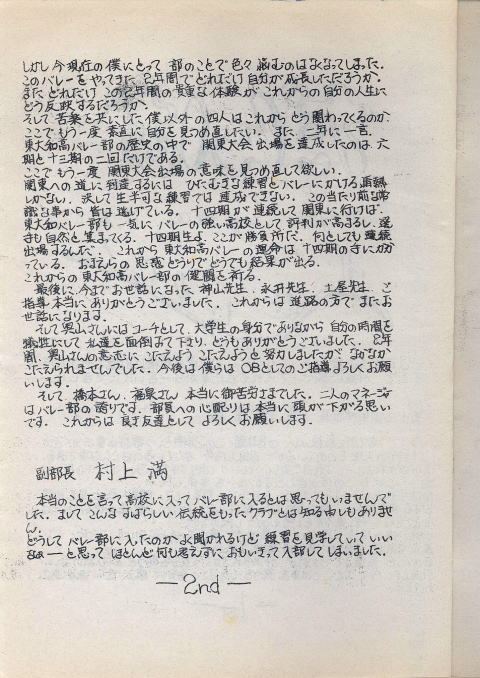 しかし今現在の僕にとって 部のことで色々悩むのはなくなってしまった。
このバレーをやってきた 2年間でどれだけ自分が成長しただろうか。
また どれだけ この2年間の貴重な体験が これからの自分の人生に
どう反映するだろうか。
そして苦楽を共にした僕以外の四人はこれからどう関わってくるのか、
ここでもう一度 素直に自分を見つめ直したい。 また、二年に一言。
東大和高バレー部の歴史の中で 関東大会出場を達成したのは、六
期と十三期の二回だけである。
ここで もう一度 関東大会出場の意味を見つめ直して欲しい。
関東への道に到達するには ひたむきな練習とバレーにかける情熱
しかない。 決して生半可な練習では 達成できない。 この当たり前な常
識な事から皆は逃げている。 十四期が連続して関東に行けば、
東大和バレー部も一気に バレーの強い高校として評判が高まるし、選
手も自然と集まってくる。 十四期生よ、ここが勝負所だ。何としても連続
出場するんだ。 これから東大和高バレーの運命は十四期の手にかか
っている。 おまえらの思惑どうりでどうでも結果が出る。
これからの東大和高バレー部の健闘を祈る。
最後に、今までお世話になった 神山先生、永井先生、土屋先生、ご
指導本当にありがとうございました。 これからは進路の方でまたお
世話になります。
そして奥山さんにはコーチとして、大学生の身分でありながら 自分の時間を
犠牲にして私達を面倒みて下さり、どうもありがとうございました。 2年
間、奥山さんの意志に こたえよう こたえようと努力しましたが なかなか
こたえられませんでした。 今後は僕らは OBとしてのご指導よろしくお願
いします。
そして、橋本さん、福泉さん 本当に御苦労さまでした。二人のマネージャ
はバレー部の誇りです。 部員への心配りは本当に頭が下がる思い
です。 これからは良き友達として よろしくお願いします。
副部長 村上 満
本当のことを言って高校に入ってバレー部に入るとは思ってもいませんで
した。 ましてこんなすばらしい伝統をもったクラブとは知る由もありませ
ん。
どうして バレー部に入ったのか よく聞かれるけど 練習を見学していて いい
なぁーと思って ほとんど何も考えずに、おもいきって入部してしまいました。
—2nd—